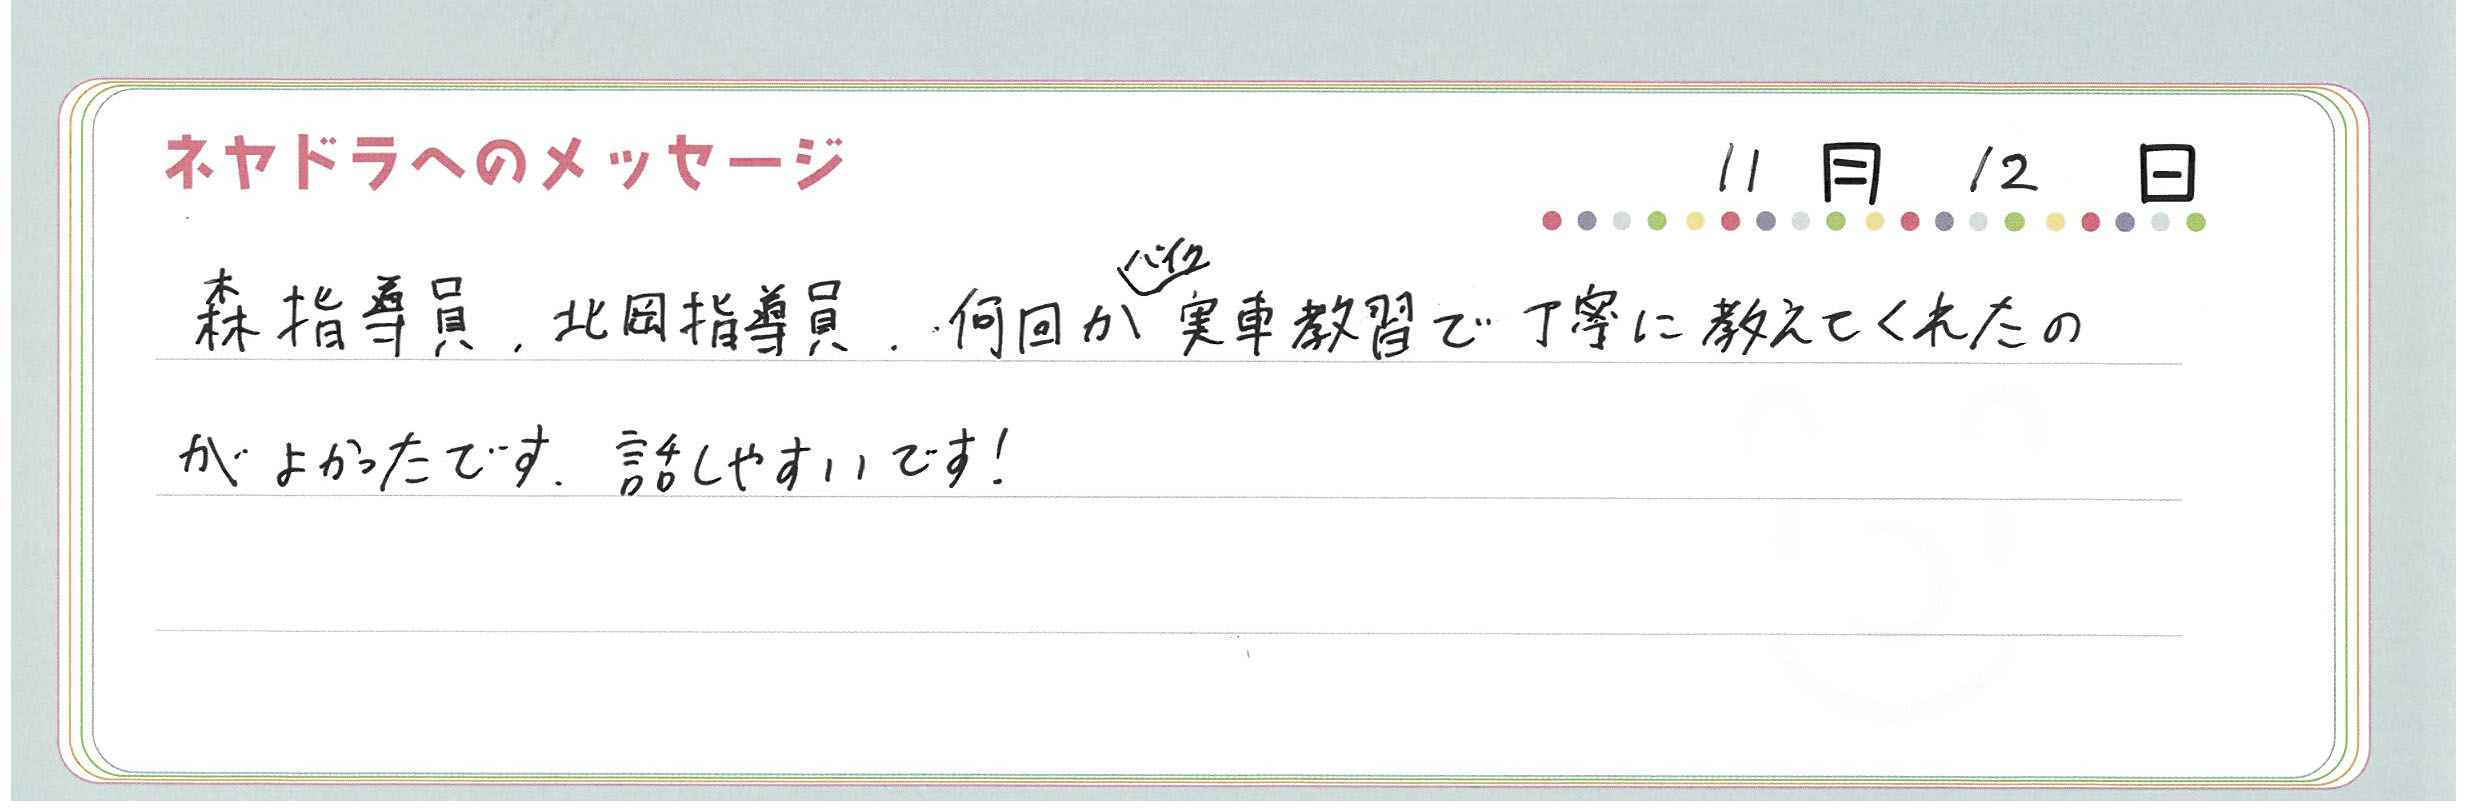 ネヤドラへのメッセージ
11月 12日
バイク
森指導員、北岡指導員、何回か実車教習で丁寧に教えてくれたの
がよかったです。話しやすいです!